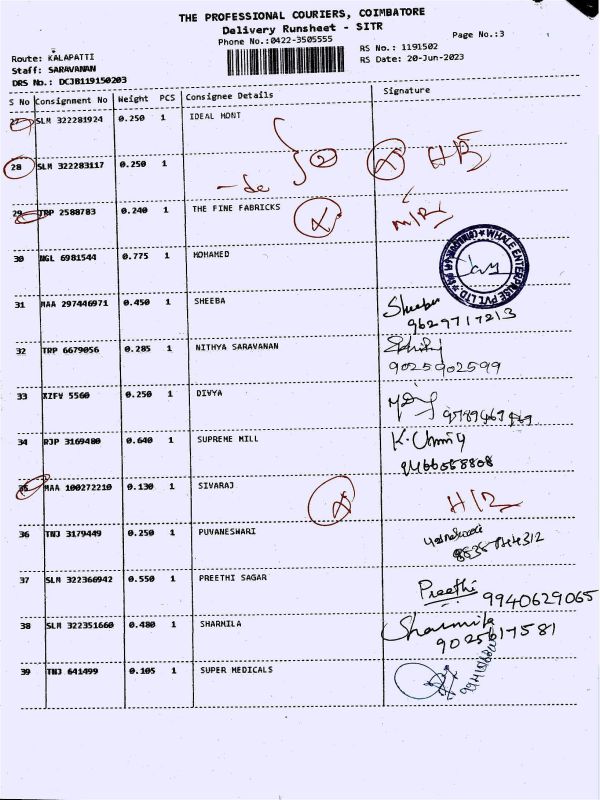 THE PROFESSIONAL COURIERS, COIMBATORE
Delivery Runsheet - SITR
Phone No.:0422-3505555
Page No.:3
RS No.: 1191502
RS Date: 20-Jun-2023
Route: KALAPATTI
Staff: SARAVANAN
DRS No.: DCJB119150203
S No Consignment No Weight PCS Consignee Details Signature
27 SLM 322281924 0.250 1 IDEAL MONT
28 SLM 322283117 0.250 1 2
29 TRP 2588783 0.240 1 THE FINE FABRICKS
30 NGL 6981544 0.775 1 MOHAMED WHALE ENTERPRISE PVT LTD
31 MAA 297446971 0.450 1 SHEEBA Sheeba
9629717213
32 TRP 6679056 0.285 1 NITHYA SARAVANAN
9025902599
33 KZFV 5560 0.250 1 DIVYA
34 RJP 3169480 0.640 1 SUPREME MILL
35 MAA 100272210 0.130 1 SIVARAJ
36 TNJ 3179449 0.250 1 PUVANESHWARI
37 SLM 322366942 0.550 1 PREETHI SAGAR Preethi 9940629065
38 SLM 322351660 0.480 1 SHARMILA Sharmila
39 TNJ 641499 0.105 1 SUPER MEDICALS